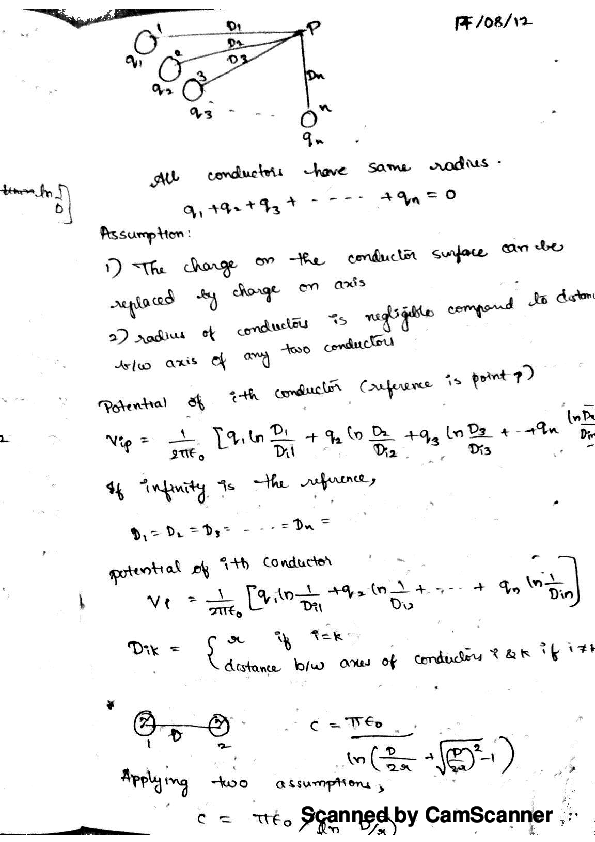 17/08/12
1 D1 P
2 D2
3 D3
q1 q2 q3 - - - -
Dn
n
qn
All conductors have same radius.
q1 + q2 + q3 + - - - - - + qn = 0
Assumption:
1) The charge on the conductor surface can be
replaced by charge on axis
2) radius of conductors is negligible compared to distan
b/w axis of any two conductors
Potential of i-th conductor (reference is point P)
Vip = 1/2πε0 [q1 ln D1/Di1 + q2 ln D2/Di2 + q3 ln D3/Di3 + - - + qn ln Dn/Din
If infinity is the reference,
D1 = D2 = D3 = - - - - - = Dn =
potential of ith conductor
Vi = 1/2πε0 [q1 ln 1/Di1 + q2 ln 1/Di2 + - - - + qn ln 1/Din]
Dik = { r if i=k
distance b/w axes of conductors i & k if i≠k
* r D r C = πε0 / ln(D/2r + √((D/2r)² - 1))
1 2
Applying two assumptions,
C = πε0 / ln D/r)
Scanned by CamScanner